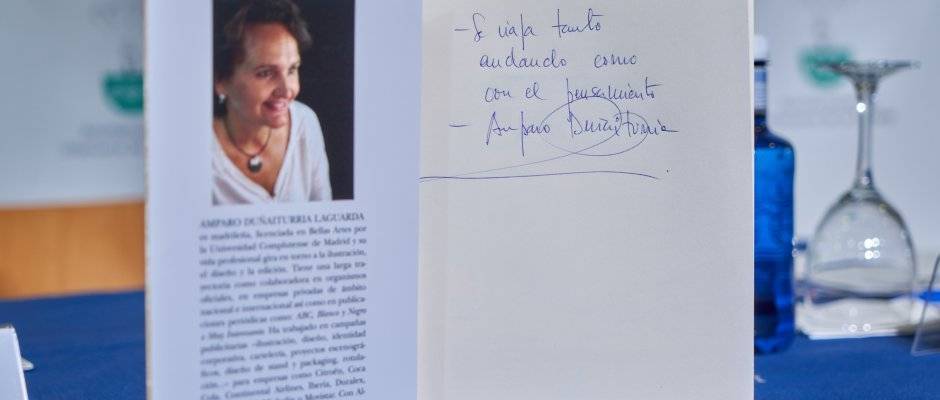 AMPARO DUÑAITURRIA LAGUARDA
es madrileña, licenciada en Bellas Artes por
la Universidad Complutense de Madrid y su
vida profesional gira en torno a la ilustración,
el diseño y la edición. Tiene una larga tra-
yectoria como colaboradora en organismos
oficiales, en empresas privadas de ámbito
nacional e internacional así como en publica-
ciones periódicas como: ABC, Blanco y Negro
o Muy Interesante. Ha trabajado en campañas
publicitarias –ilustración, diseño, identidad
corporativa, cartelería, proyectos escenográ-
ficos, diseño de stand y packaging, rotula-
ción...– para empresas como Citroën, Coca
Cola, Continental Airlines, Iberia, Duralex,
o Movistar. Con Al-
- Se viaja tanto
andando como
con el pensamiento
- Amparo Duñaiturria